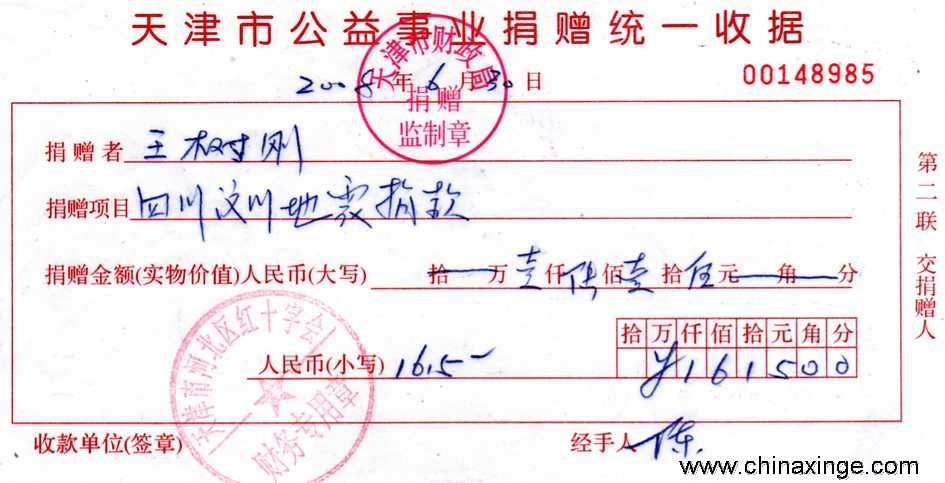 天津市公益事业捐赠统一收据
2008年6月30日
00148985
天津市财政局
捐赠
监制章
捐赠者 王树刚
捐赠项目 四川汶川地震捐款
捐赠金额(实物价值)人民币(大写) 拾 万壹仟陆佰壹拾伍元 角 分
拾万仟佰拾元角分
人民币(小写) 1615- ¥161500
天津市河北区红十字会
财务专用章
收款单位(签章) 经手人 陈
第二联 交捐赠人
www.chinaxinge.com